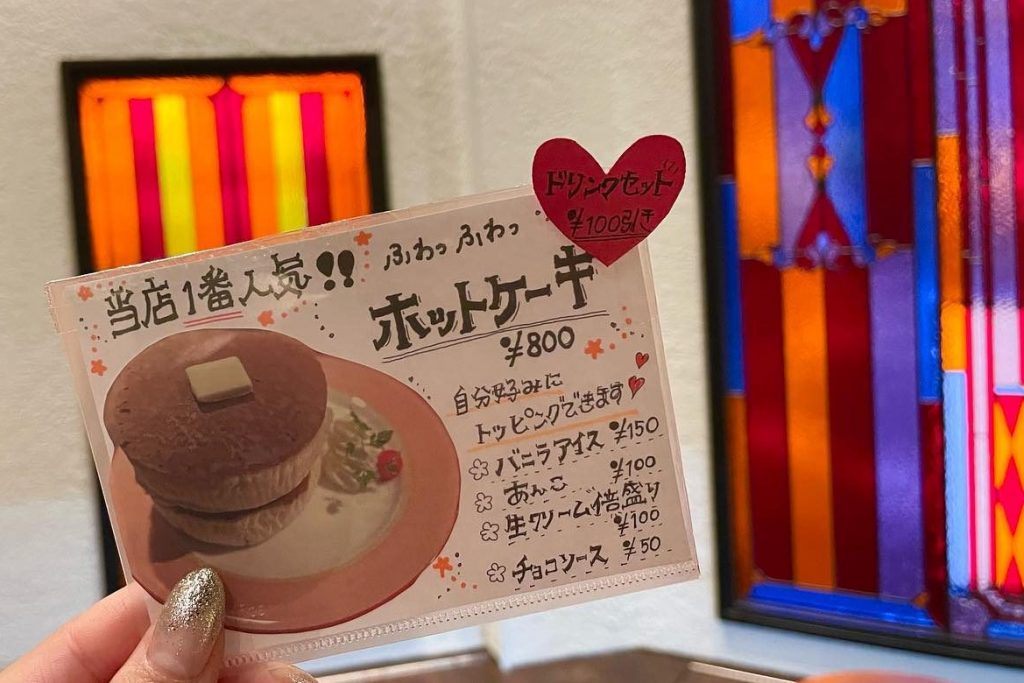 ドリンクセット
¥100引き
当店1番人気!!
ふわっふわっ
ホットケーキ
¥800
自分好みに
トッピングできます
バニラアイス ¥150
あんこ ¥100
生クリーム倍盛り
¥100
チョコソース ¥50